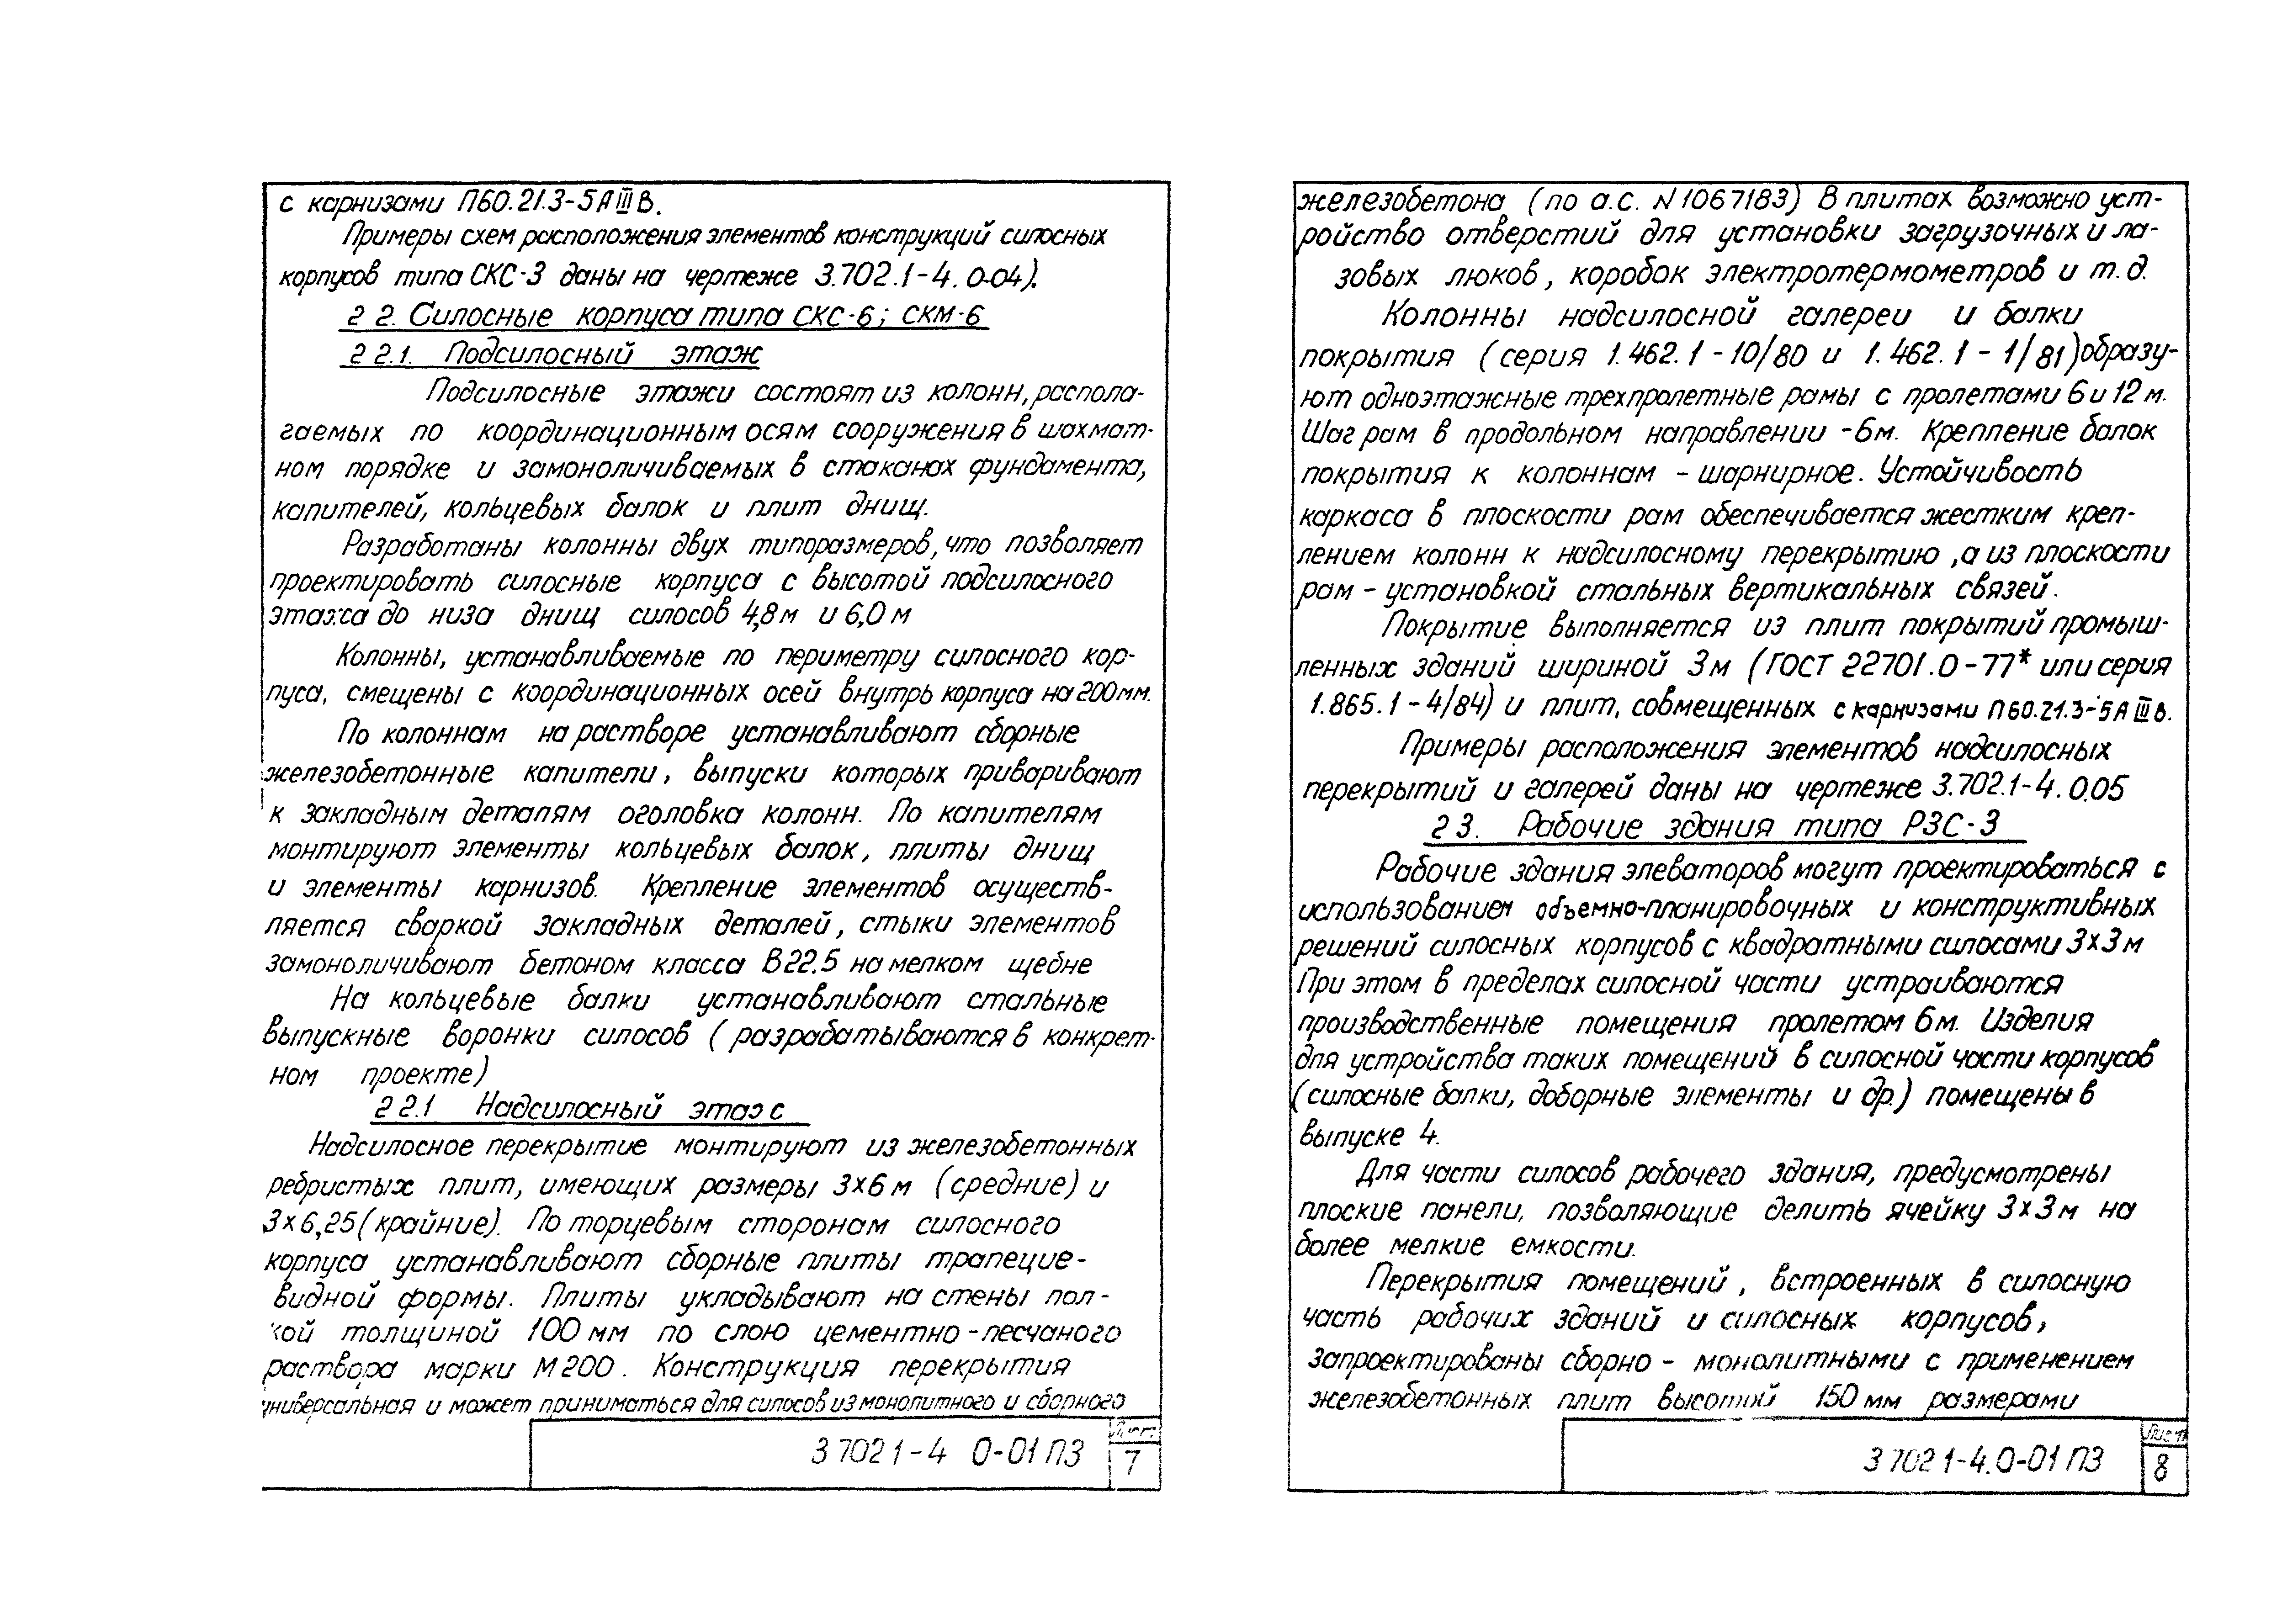 с карнизами П60.21.3-5АIIIВ.
Примеры схем расположения элементов конструкций силосных
корпусов типа СКС-3 даны на чертеже 3.702.1-4.0-04).
2 2. Силосные корпуса типа СКС-6; СКМ-6
2 2.1. Подсилосный этаж
Подсилосные этажи состоят из колонн, распола-
гаемых по координационным осям сооружения в шахмат-
ном порядке и замоноличиваемых в стаканах фундамента,
капителей, кольцевых балок и плит днищ.
Разработаны колонны двух типоразмеров, что позволяет
проектировать силосные корпуса с высотой подсилосного
этажа до низа днищ силосов 4,8м и 6,0м
Колонны, устанавливаемые по периметру силосного кор-
пуса, смещены с координационных осей внутрь корпуса на 200мм.
По колоннам на растворе устанавливают сборные
железобетонные капители, выпуски которых приваривают
к закладным деталям оголовка колонн. По капителям
монтируют элементы кольцевых балок, плиты днищ
и элементы карнизов. Крепление элементов осуществ-
ляется сваркой закладных деталей, стыки элементов
замоноличивают бетоном класса В22.5 на мелком щебне
На кольцевые балки устанавливают стальные
выпускные воронки силосов (разрабатываются в конкрет-
ном проекте)
2 2.1 Надсилосный этаж
Надсилосное перекрытие монтируют из железобетонных
ребристых плит, имеющих размеры 3х6м (средние) и
3х6,25(крайние). По торцевым сторонам силосного
корпуса устанавливают сборные плиты трапецие-
видной формы. Плиты укладывают на стены пол-
кой толщиной 100мм по слою цементно-песчаного
раствора марки М200. Конструкция перекрытия
универсальная и может приниматься для силосов из монолитного и сборного
3 702 1-4 0-01 ПЗ
Лист
7
железобетона (по а.с. N1067183) В плитах возможно уст-
ройство отверстий для установки загрузочных и ла-
зовых люков, коробок электротермометров и т.д.
Колонны надсилосной галереи и балки
покрытия (серия 1.462.1-10/80 и 1.462.1-1/81) образу-
ют одноэтажные трехпролетные рамы с пролетами 6 и 12 м.
Шаг рам в продольном направлении -6м. Крепление балок
покрытия к колоннам - шарнирное. Устойчивость
каркаса в плоскости рам обеспечивается жестким креп-
лением колонн к надсилосному перекрытию, а из плоскости
рам - установкой стальных вертикальных связей.
Покрытие выполняется из плит покрытий промыш-
ленных зданий шириной 3м (ГОСТ 22701.0-77* или серия
1.865.1-4/84) и плит, совмещенных с карнизами П60.21.3-5АIIIВ.
Примеры расположения элементов надсилосных
перекрытий и галерей даны на чертеже 3.702.1-4.0.05
2 3. Рабочие здания типа РЗС-3
Рабочие здания элеваторов могут проектироваться с
использованием объемно-планировочных и конструктивных
решений силосных корпусов с квадратными силосами 3х3м
При этом в пределах силосной части устраиваются
производственные помещения пролетом 6м. Изделия
для устройства таких помещений в силосной части корпусов
(силосные балки, доборные элементы и др.) помещены в
выпуске 4.
Для части силосов рабочего здания, предусмотрены
плоские панели, позволяющие делить ячейку 3х3м на
более мелкие емкости.
Перекрытия помещений, встроенных в силосную
часть рабочих зданий и силосных корпусов,
запроектированы сборно-монолитными с применением
железобетонных плит высотой 150мм размерами
3 702 1-4.0-01 ПЗ
Лист
8